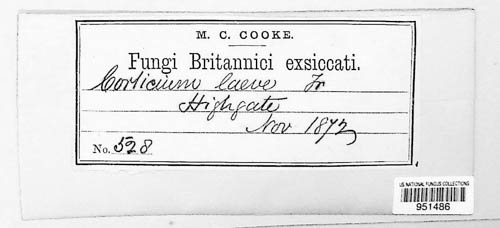 M. C. COOKE.
Fungi Britannici exsiccati.
Corticium laeve Fr
Highgate
Nov 1872
No. 528
US NATIONAL FUNGUS COLLECTIONS
951486